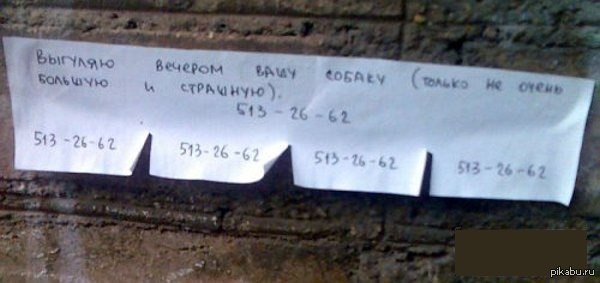 Выгуляю вечером вашу собаку (только не очень
большую и страшную).
513-26-62
513-26-62
513-26-62
513-26-62
513-26-62
pikabu.ru